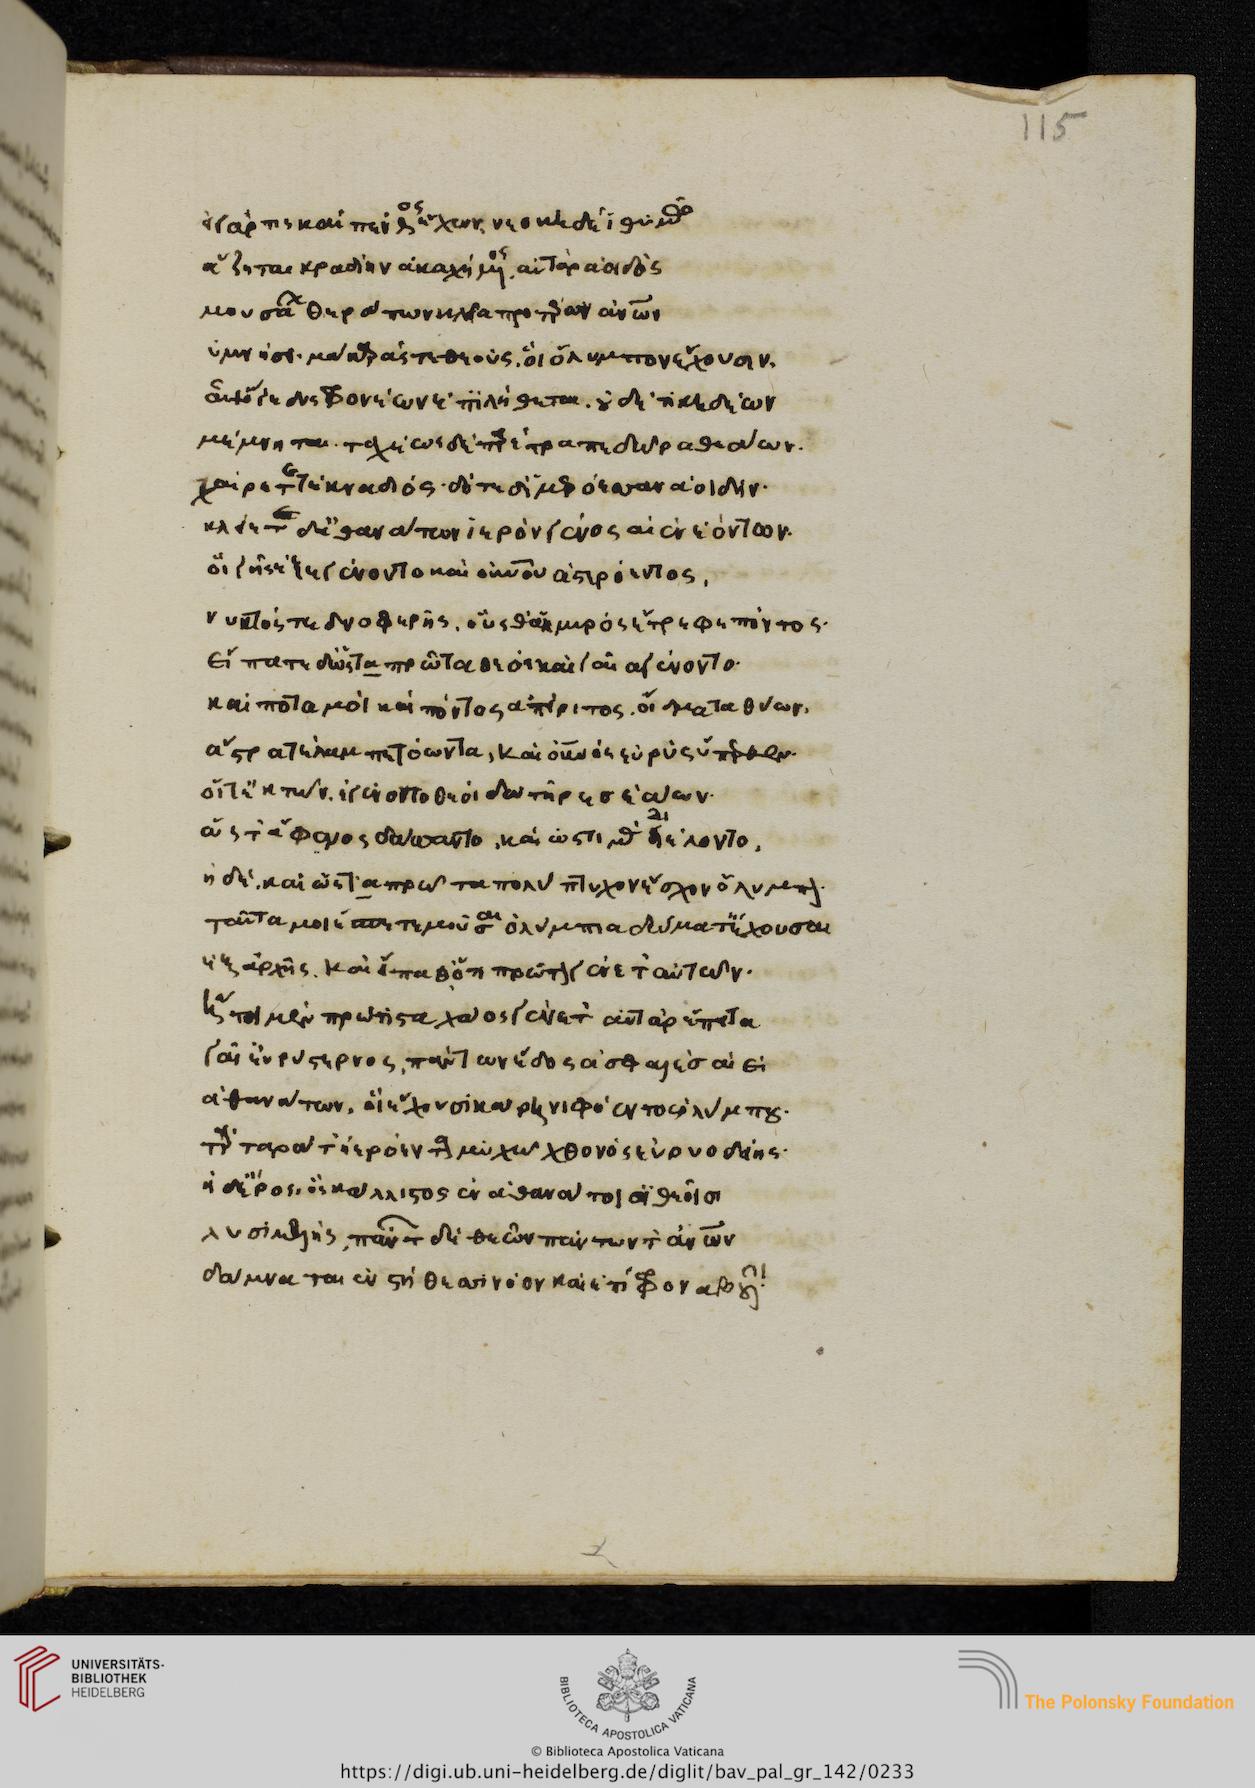 115
εἰ γάρ τις καὶ πένθος ἔχων νεοκηδέϊ θυμῷ
ἄζηται κραδίην ἀκαχήμενος, αὐτὰρ ἀοιδὸς
μουσάων θεράπων κλέα προτέρων ἀνων
ὑμνήσει μάκαράς τε θεοὺς, οἳ ὄλυμπον ἔχουσιν,
δυσφρονέων ἐπιλήθεται. οὐδέ τι κηδέων
μέμνηται. ταχέως δὲ παρέτραπε δῶρα θεάων.
χαίρετε τέκνα διός. δότε δ' ἱμερόεσσαν ἀοιδήν.
κλείετε δ' ἀθανάτων ἱερὸν γένος αἰὲν ἐόντων.
οἳ γῆς ἐξεγένοντο καὶ οὐνοῦ ἀστερόεντος,
νυκτός τε δνοφερῆς, οὕς θ' ἁλμυρὸς ἔτρεφε πόντος.
εἴπατε δ' ὡς τὰ πρῶτα θεοὶ καὶ γαῖα γένοντο.
καὶ ποταμοὶ καὶ πόντος ἀπείριτος. οἴδματα θύων,
ἄστρα τε λαμπετόωντα, καὶ οὐνὸς εὐρὺς ὕπερθεν.
οἵ τ' ἐκ τῶν ἐγένοντο θεοὶ δωτῆρες ἐάων.
ὥς τ' ἄφενος δάσσαντο, καὶ ὡς τιμὰς διέλοντο,
ἠδὲ καὶ ὡς τὰ πρῶτα πολύπτυχον ἔσχον ὄλυμπον.
ταῦτά μοι ἔσπετε μοῦσαι ὀλύμπια δώματ' ἔχουσαι
ἐξ ἀρχῆς. καὶ εἴπαθ' ὅτι πρῶτον γένετ' αὐτῶν.
ἤτοι μὲν πρώτιστα χάος γένετ' αὐτὰρ ἔπειτα
γαῖ' εὐρύστερνος, πάντων ἕδος ἀσφαλὲς αἰεὶ
ἀθανάτων, οἳ ἔχουσι κάρη νιφόεντος ὀλύμπου.
τάρταρά τ' ἠερόεντα μυχῷ χθονὸς εὐρυοδείης.
ἠδ' ἔρος, ὃς κάλλιστος ἐν ἀθανάτοισι θεοῖσι
λυσιμελὴς, πάντων δὲ θεῶν πάντων τ' ἀνων
δάμναται ἐν στήθεσσι νόον καὶ ἐπίφρονα βουλήν.
UNIVERSITÄTS-
BIBLIOTHEK
HEIDELBERG
BIBLIOTECA APOSTOLICA VATICANA
The Polonsky Foundation
© Biblioteca Apostolica Vaticana
https://digi.ub.uni-heidelberg.de/diglit/bav_pal_gr_142/0233